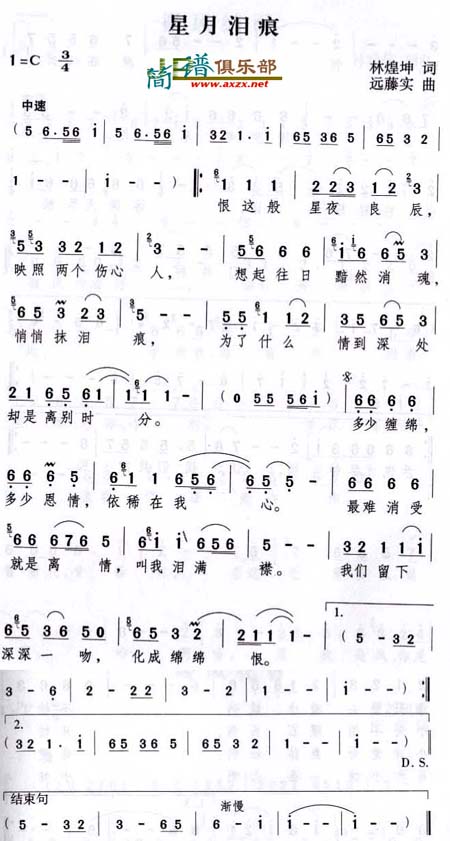 星月泪痕
1=C 3/4
简谱俱乐部
www.axzx.net
林煌坤 词
远藤实 曲
中速
( 5 6·5 6 i | 5 6·5 6 i | 3 2 1·i | 6 5 3 6 5 | 6 5 3 2
1 - - | i - - ) ‖: 1 1 1 | 2 2 3 1 2 3
恨 这 般 星 夜 良 辰,
5 3 3 2 1 2 | 3 - - | 5 6 6 6 | 1 6 6 5 3
映照 两个 伤心 人, 想 起 往 日 黯 然 消 魂,
6 5 3 2 3 | 5 - - | 5 5 1 1 2 | 3 5 6 5 3
悄悄 抹 泪 痕, 为了 什 么 情到 深 处
2 1 6 5 6 1 | 1 1 - | ( 0 5 5 5 6 i ) | 6 6 6 6
却是 离别 时 分。 多少 缠 绵,
6 6 6 5 | 5 6 1 1 6 5 6 | 6 5 - | 6 6 6 6
多少 恩 情, 依 稀 在 我 心。 最难 消 受
6 6 6 7 6 5 | 6 i i 6 5 6 | 5 - - | 3 2 1 1 i
就是 离 情, 叫我 泪 满 襟。 我们 留 下
6 5 3 6 5 0 | 5 5 3 2 | 2 1 1 1 - | ( 5 - 3 2
深深 一 吻, 化成 绵绵 恨。
1.
3 - 6 | 2 - 2 2 | 3 - 5 | 1 - - | i - - ) :‖
2.
( 3 2 1·i | 6 5 3 6 5 | 6 5 3 2 | 1 - - | i - - )
D.S.
结束句
渐慢
5 - 3 2 | 3 - 6 5 | 6 - i | i - - | i - - ) ‖